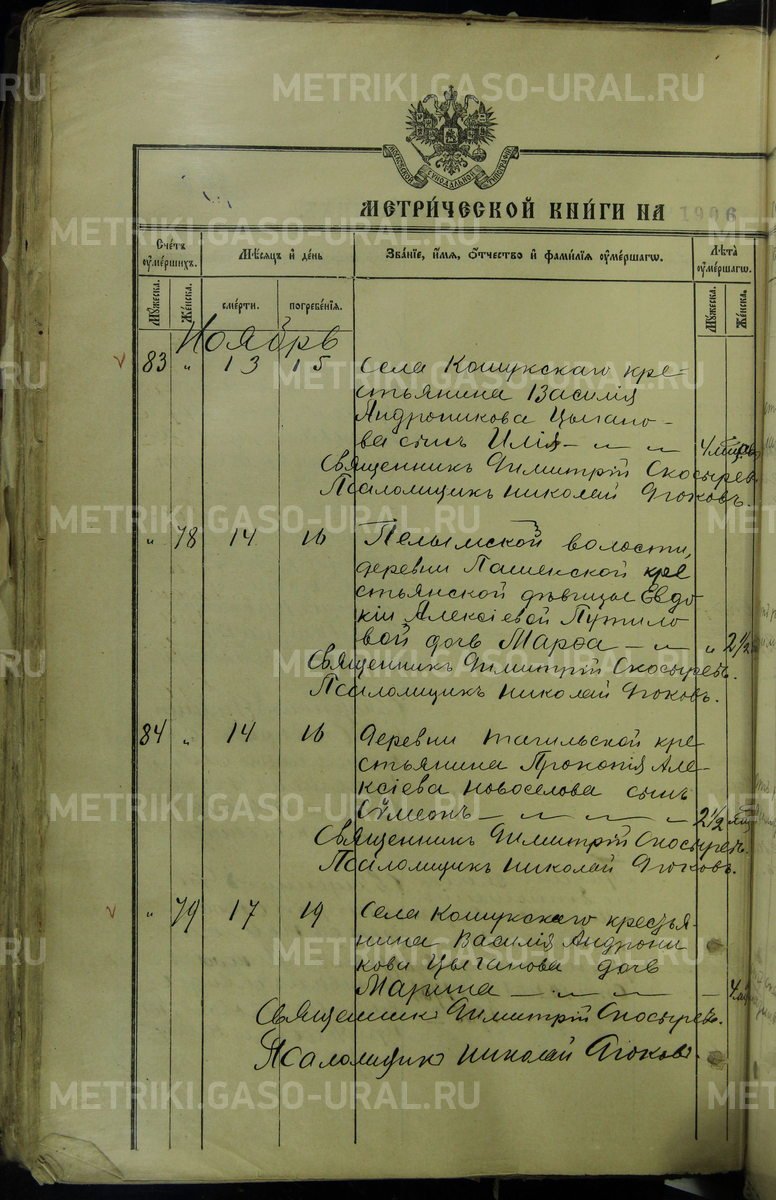 METRIKI.GASO-URAL.RU
МОСКОВСКОЙ СѴНОДАЛЬНОЙ ТИПОГРАФІИ
МЕТРИ́ЧЕСКОЙ КНИ́ГИ НА 1906
Сче́тъ ᲂу҆ме́ршихъ.
Мѣ́сяцъ и҆ де́нь
Зва́нїе, и҆́мѧ, ѻ҆́тчество и҆ фами́лїѧ ᲂу҆ме́ршагѡ.
Лѣ̑та ᲂу҆ме́ршагѡ.
Мꙋ́жеска.
Же́нска.
сме́рти.
погребе́нїѧ.
Мꙋ́жеска.
Же́нска.
Ноябрь
83 " 13 15 Села Кошукскаго кре-
стьянина Василія
Андроникова Цыгано-
ва сынъ Илія — 4 мѣсяцевъ
Священникъ Димитрій Скосыревъ.
Псаломщикъ Николай Дюковъ.
" 78 14 16 Пелымской волости,
деревни Пашенской кре
стьянской дѣвицы Евдо
кіи Алексіевой Путило
вой дочь Марѳа — " 2½
Священникъ Димитрій Скосыревъ.
Псаломщикъ Николай Дюковъ.
84 " 14 16 Деревни Тагильской кре-
стьянина Прокопія Але-
ксіева Новоселова сынъ
Сѵмеонъ — 2½
Священникъ Димитрій Скосыревъ.
Псаломщикъ Николай Дюковъ.
" 79 17 19 Села Кошукскаго крестья-
нина Василія Андрони
кова Цыганова дочь
Марина — 4
Священникъ Димитрій Скосыревъ.
Псаломщикъ Николай Дюковъ.